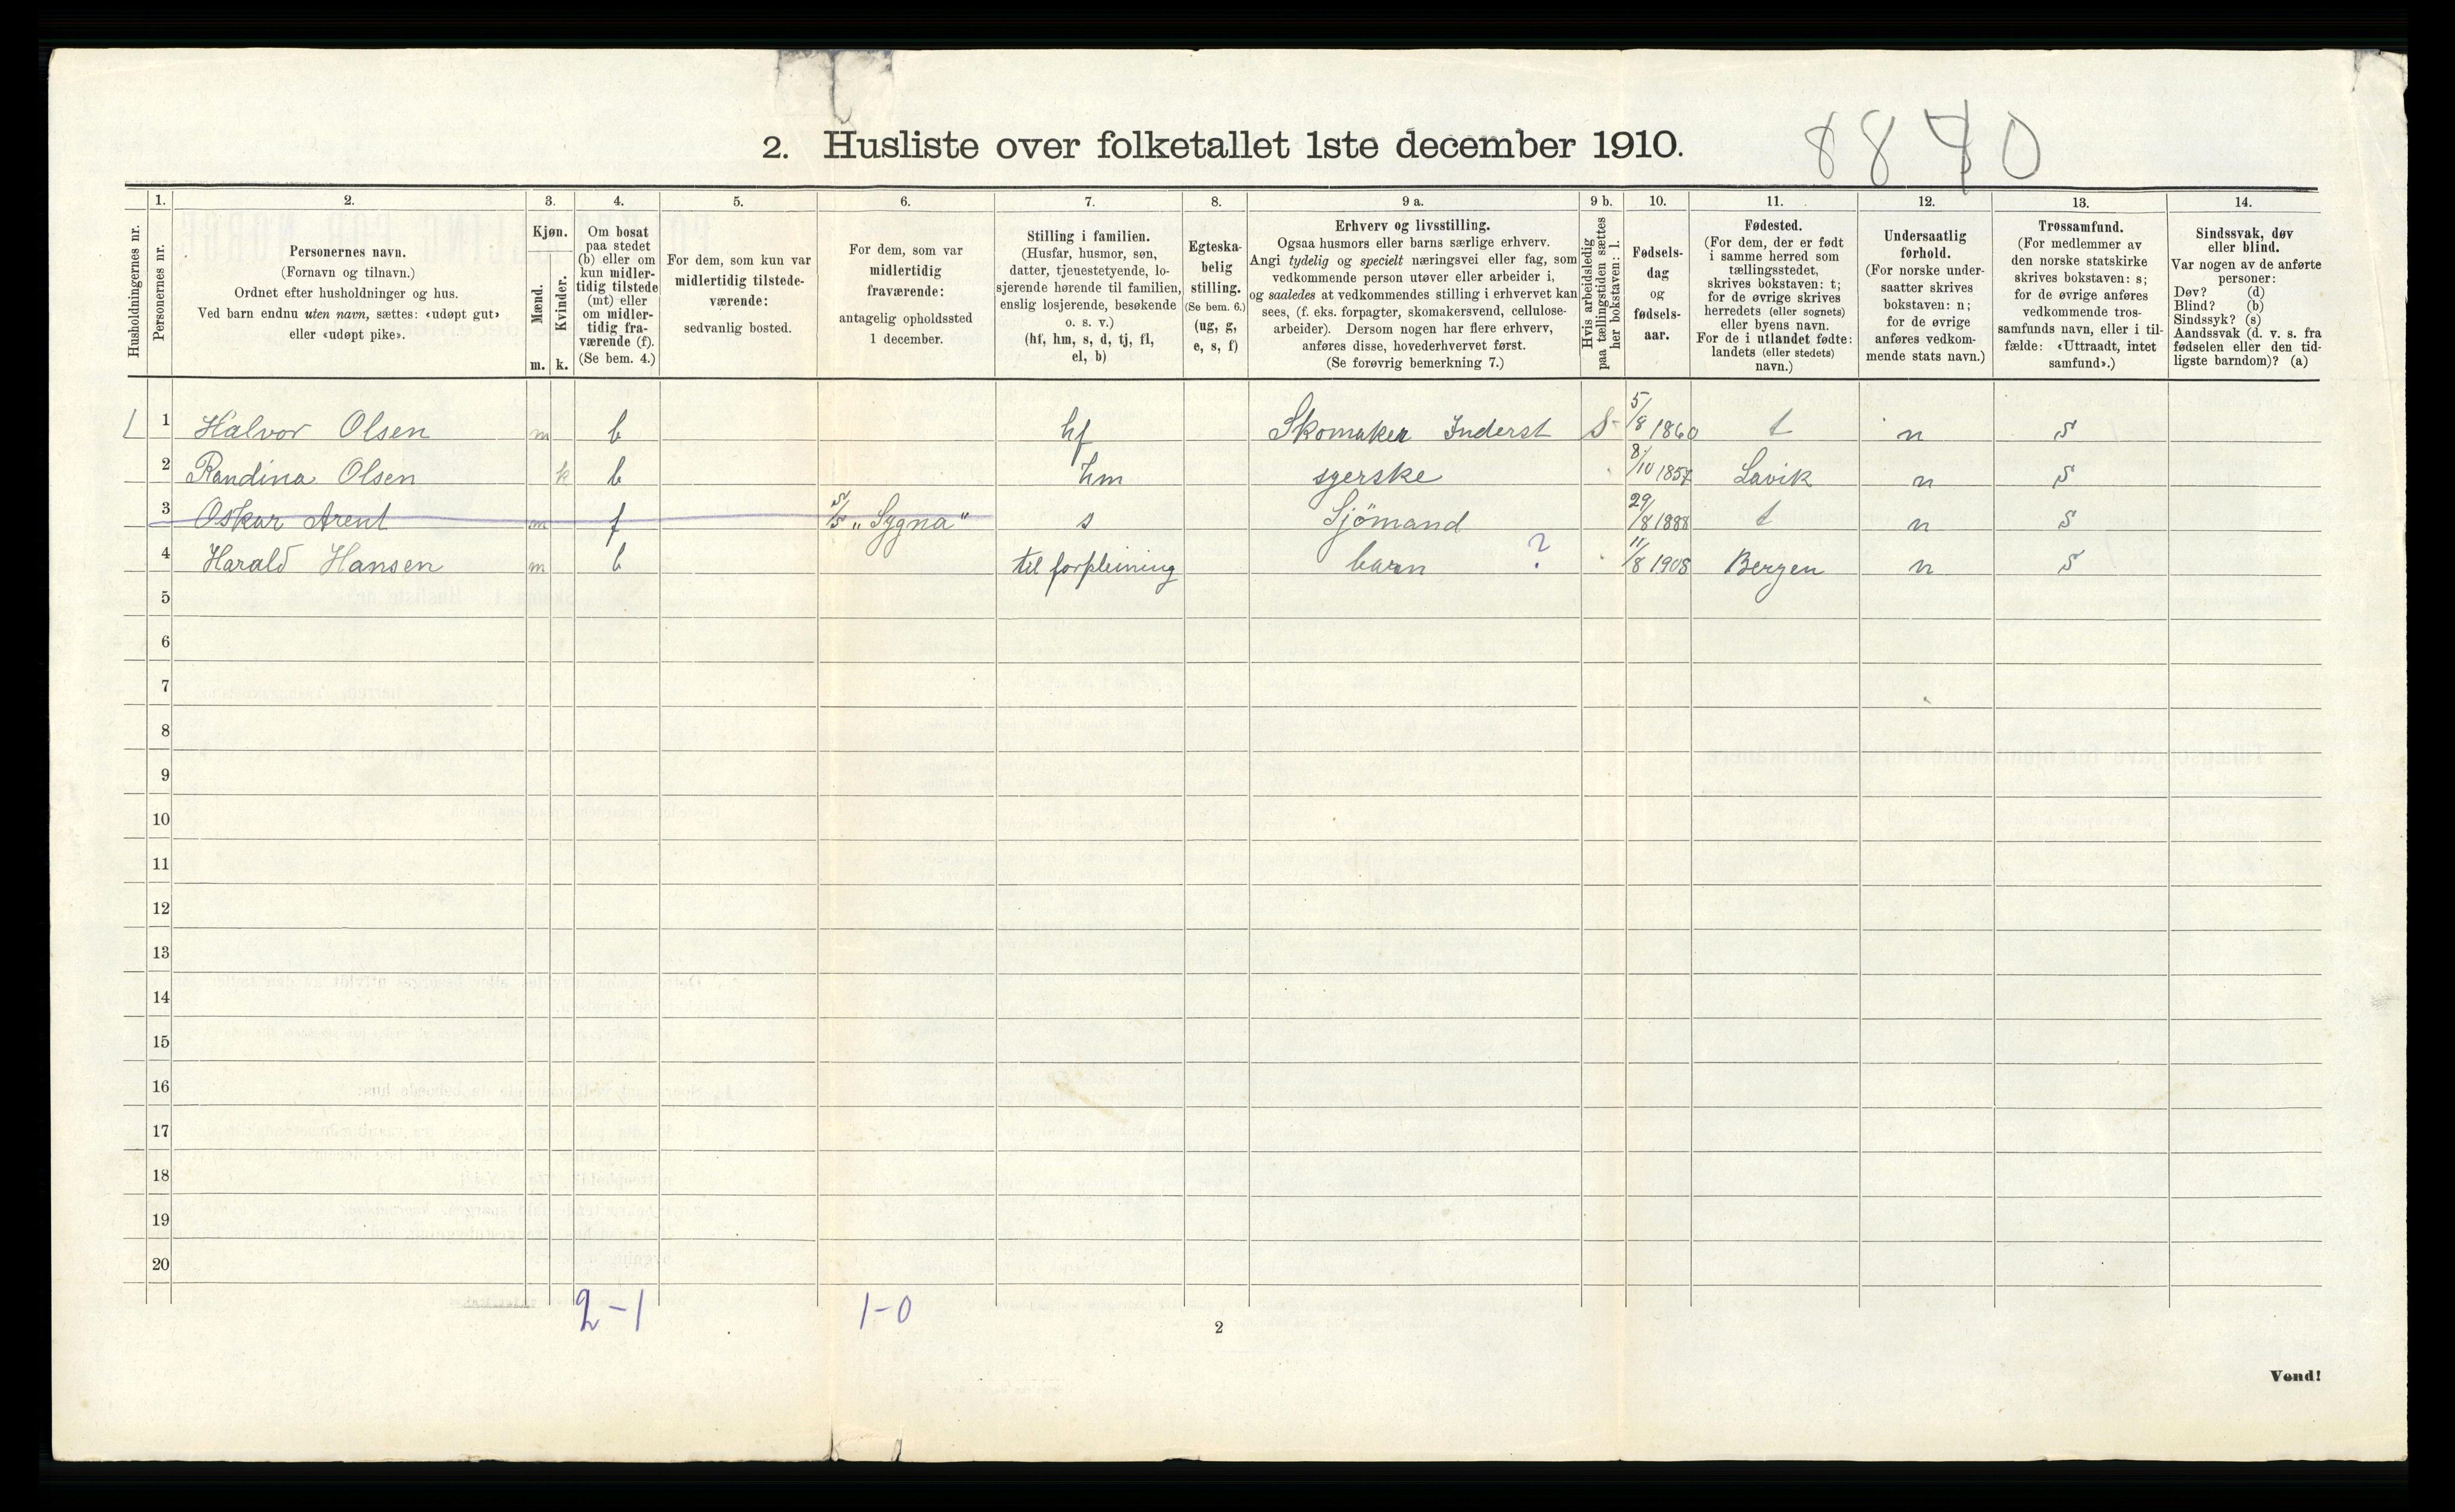 8840
2. Husliste over folketallet 1ste december 1910.
Husholdningernes nr.
1.
Personernes nr.
2.
Personernes navn.
(Fornavn og tilnavn.)
Ordnet efter husholdninger og hus.
Ved barn endnu uten navn, sættes: «udøpt gut»
eller «udøpt pike».
3.
Kjøn.
Mænd.
Kvinder.
m. k.
4.
Om bosat
paa stedet
(b) eller om
kun midler-
tidig tilstede
(mt) eller
om midler-
tidig fra-
værende (f).
(Se bem. 4.)
5.
For dem, som kun var
midlertidig tilstede-
værende:
sedvanlig bosted.
6.
For dem, som var
midlertidig
fraværende:
antagelig opholdssted
1 december.
7.
Stilling i familien.
(Husfar, husmor, søn,
datter, tjenestetyende, lo-
sjerende hørende til familien,
enslig losjerende, besøkende
o. s. v.)
(hf, hm, s, d, tj, fl,
el, b)
8.
Egteska-
belig
stilling.
(Se bem. 6.)
(ug, g,
e, s, f)
9 a.
Erhverv og livsstilling.
Ogsaa husmors eller barns særlige erhverv.
Angi tydelig og specielt næringsvei eller fag, som
vedkommende person utøver eller arbeider i,
og saaledes at vedkommendes stilling i erhvervet kan
sees, (f. eks. forpagter, skomakersvend, cellulose-
arbeider). Dersom nogen har flere erhverv,
anføres disse, hovederhvervet først.
(Se forøvrig bemerkning 7.)
9 b.
Hvis arbeidsledig
paa tællingstiden sættes
her bokstaven: l.
10.
Fødsels-
dag
og
fødsels-
aar.
11.
Fødested.
(For dem, der er født
i samme herred som
tællingsstedet,
skrives bokstaven: t;
for de øvrige skrives
herredets (eller sognets)
eller byens navn.
For de i utlandet fødte:
landets (eller stedets)
navn.)
12.
Undersaatlig
forhold.
(For norske under-
saatter skrives
bokstaven: n;
for de øvrige
anføres vedkom-
mende stats navn.)
13.
Trossamfund.
(For medlemmer av
den norske statskirke
skrives bokstaven: s;
for de øvrige anføres
vedkommende tros-
samfunds navn, eller i til-
fælde: «Uttraadt, intet
samfund».)
14.
Sindssvak, døv
eller blind.
Var nogen av de anførte
personer:
Døv? (d)
Blind? (b)
Sindssyk? (s)
Aandssvak (d. v. s. fra
fødselen eller den tid-
ligste barndom)? (a)
1 1 Halvor Olsen m b hf Skomaker Inderst S- 5/8 1860 t n s
2 Randina Olsen k b hm syerske 8/10 1857 Lavik n s
3 Oskar Arent m f S/S „Sygna" s Sjömand 29/8 1888 t n s
4 Harald Hansen m b til forpleining barn ? 11/8 1908 Bergen n s
5
6
7
8
9
10
11
12
13
14
15
16
17
18
19
20
2-1 1-0
2
Vend!